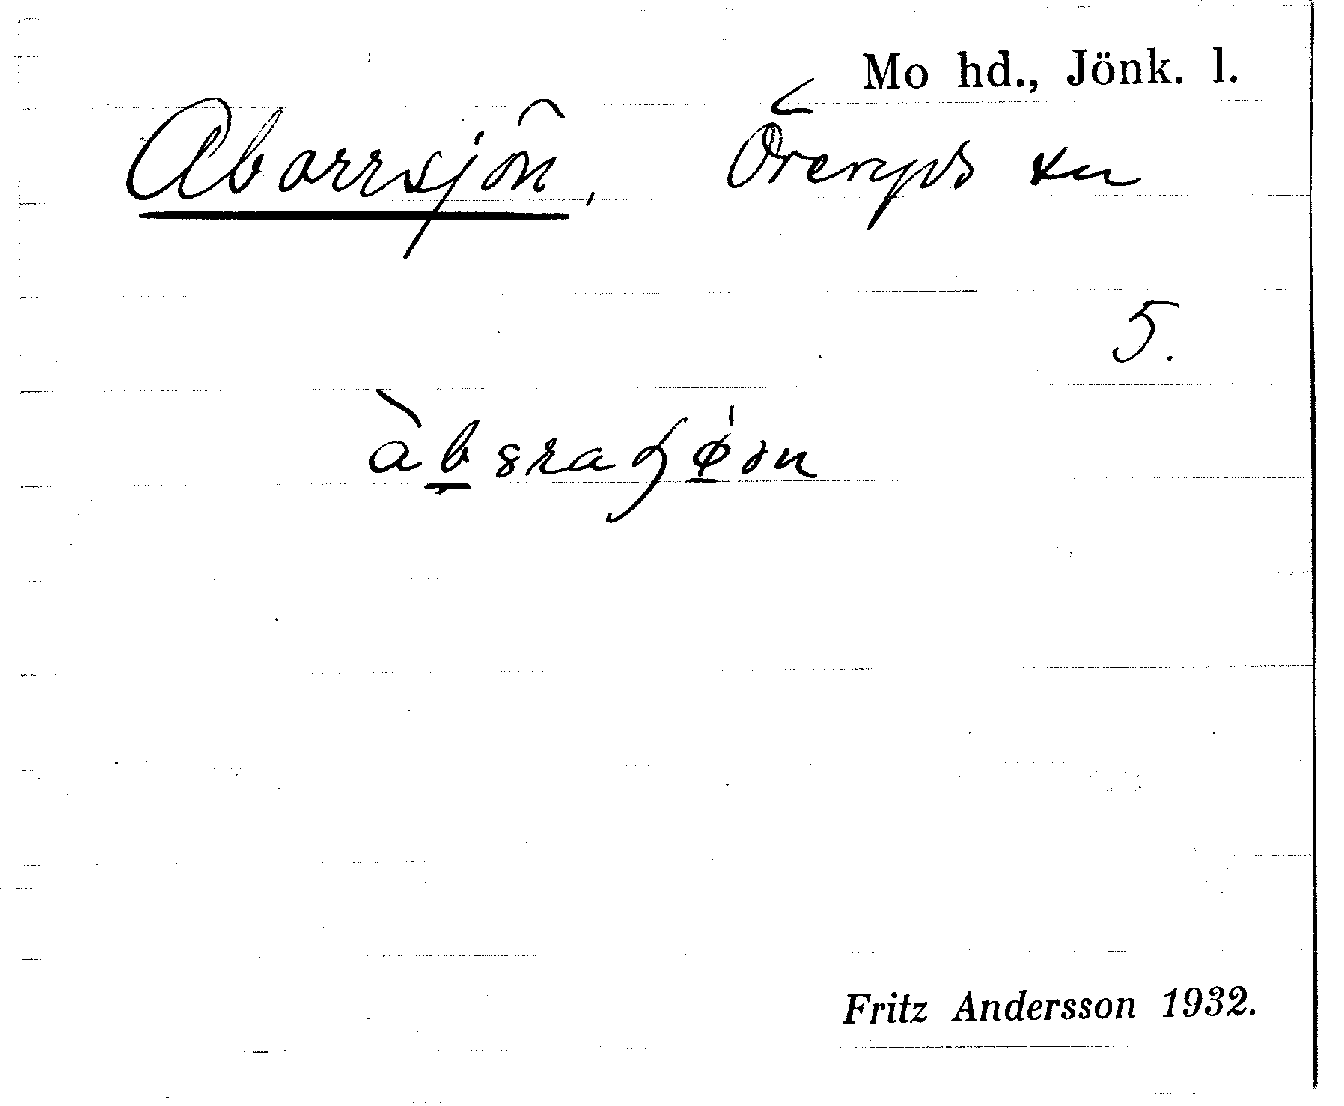 Mo hd., Jönk. l.
Aborrsjön, Öreryds sn
5.
Fritz Andersson 1932.